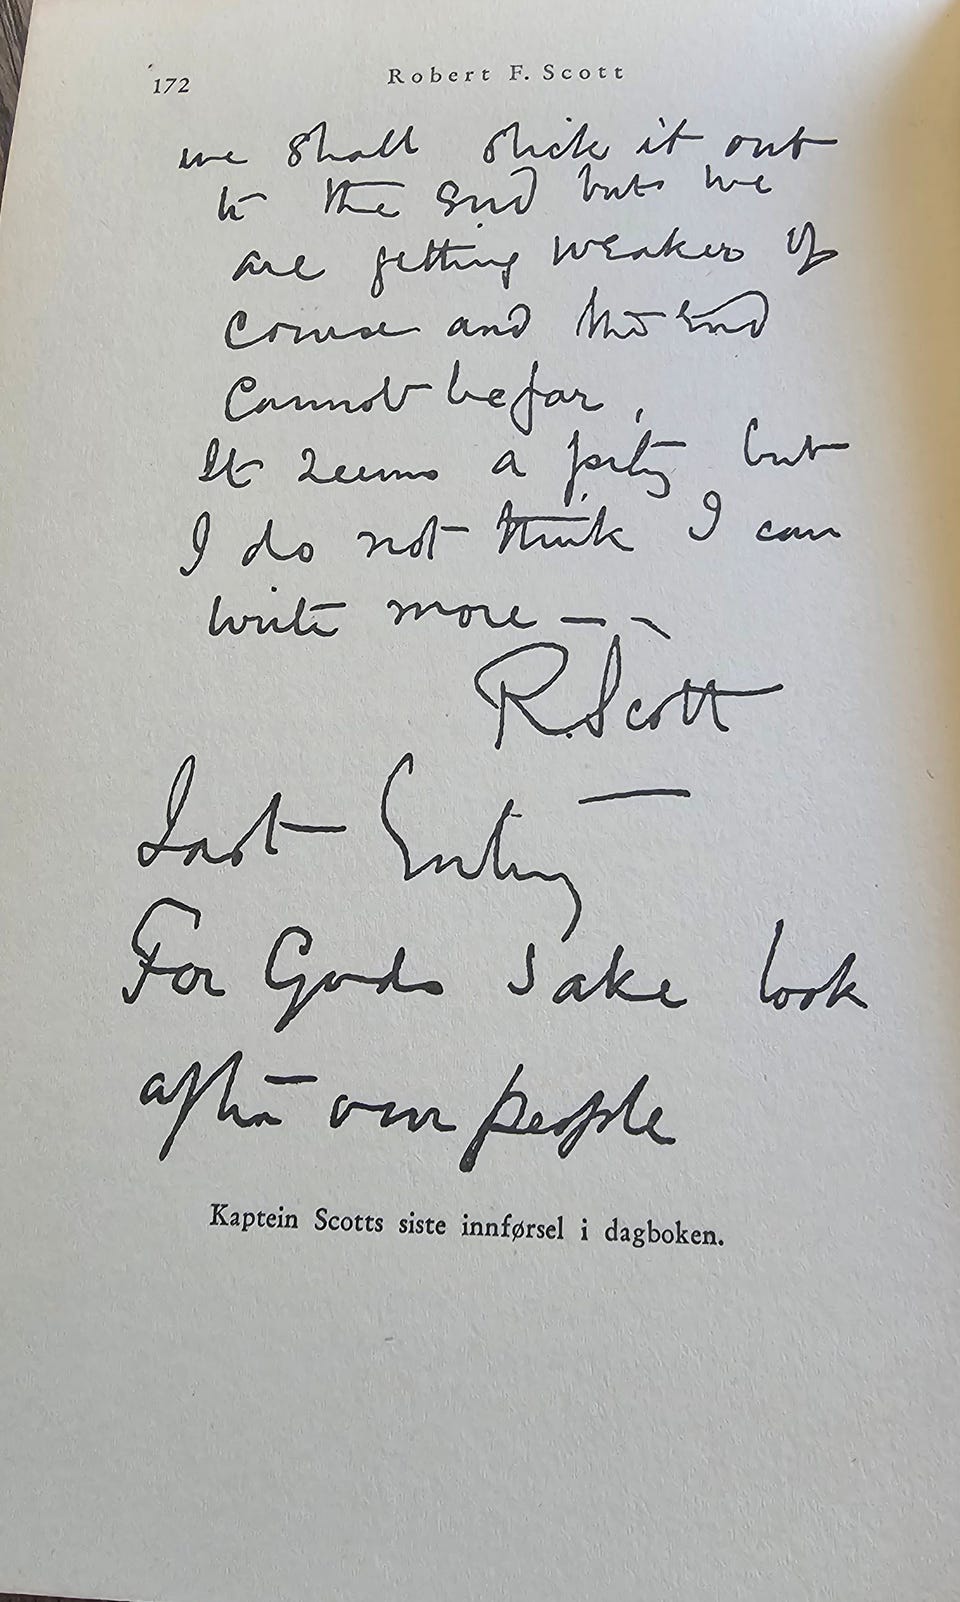 172
Robert F. Scott
we shall stick it out
to the end but we
are getting weaker of
course and the end
cannot be far,
It seems a pity but
I do not think I can
write more — –
R. Scott
Last Entry —
For Gods sake look
after our people
Kaptein Scotts siste innførsel i dagboken.